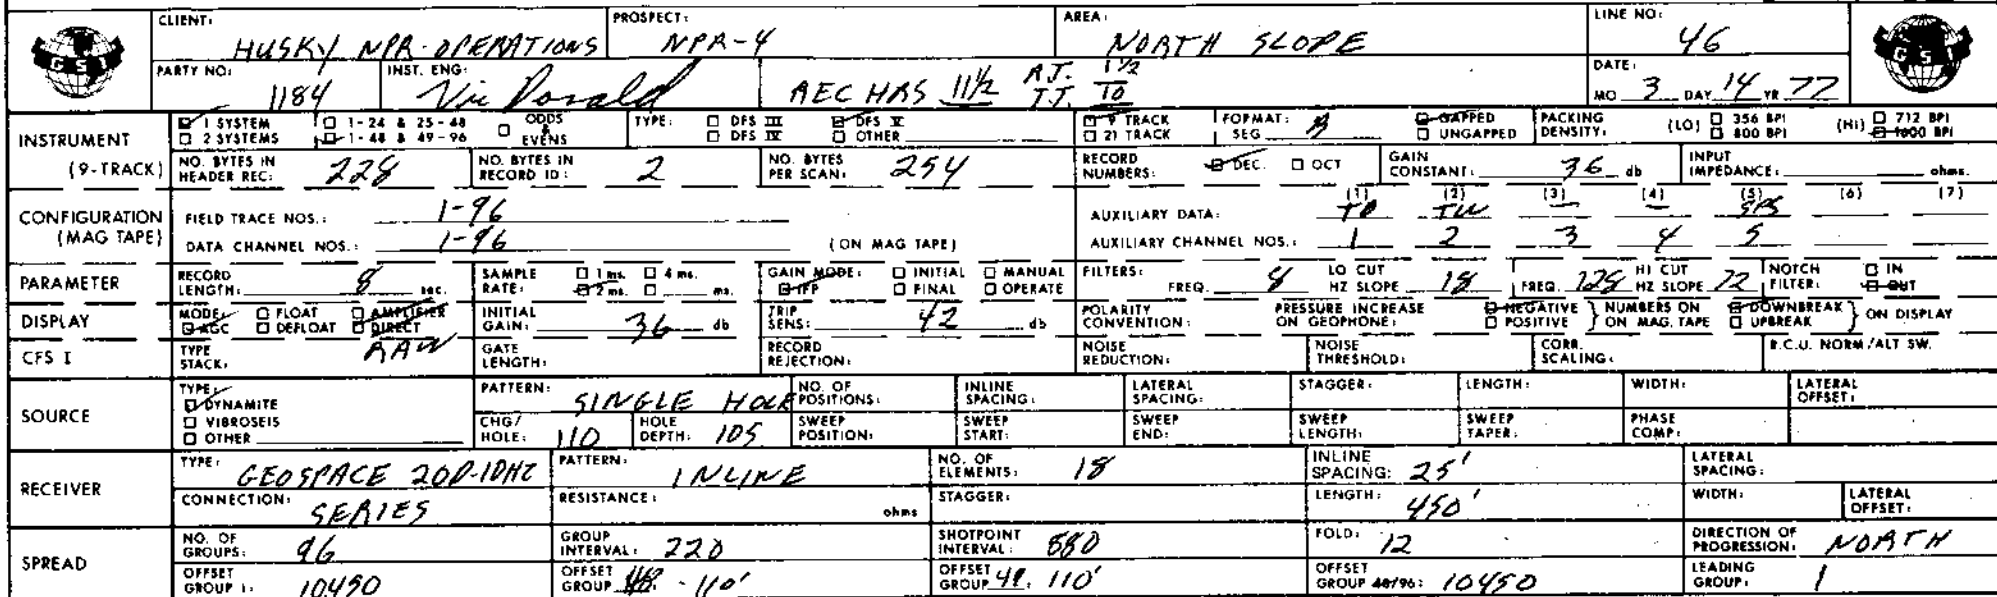 CLIENT: HUSKY NPR-OPERATIONS PROSPECT: NPR-4 AREA: NORTH SLOPE LINE NO: 46
GSI GSI
PARTY NO: 1184 INST. ENG: Vic Donald AEC HAS 11½ R.T. 1½ T.T. 10 DATE: MO 3 DAY 14 YR 77
INSTRUMENT (9-TRACK)
1 SYSTEM 1-24 & 25-48 ODDS & EVENS TYPE: DFS III DFS V 9 TRACK FORMAT: SEG B GAPPED PACKING DENSITY: (LO) 356 BPI (HI) 712 BPI
2 SYSTEMS 1-48 & 49-96 DFS IV OTHER 21 TRACK UNGAPPED 800 BPI 1600 BPI
NO. BYTES IN HEADER REC: 228 NO. BYTES IN RECORD ID: 2 NO. BYTES PER SCAN: 254 RECORD NUMBERS: DEC. OCT GAIN CONSTANT: 36 db INPUT IMPEDANCE: ohms.
CONFIGURATION (MAG TAPE)
FIELD TRACE NOS.: 1-96 AUXILIARY DATA: (1) TB (2) TW (3) - (4) - (5) SPS (6) (7)
DATA CHANNEL NOS.: 1-96 (ON MAG TAPE) AUXILIARY CHANNEL NOS.: 1 2 3 4 5
PARAMETER RECORD LENGTH: 8 sec. SAMPLE RATE: 1 ms. 4 ms. 2 ms. ms. GAIN MODE: INITIAL MANUAL IFP FINAL OPERATE FILTERS: FREQ. 8 LO CUT HZ SLOPE 18 FREQ. 128 HI CUT HZ SLOPE 72 NOTCH FILTER: IN OUT
DISPLAY MODE: FLOAT AMPLIFIER AGC DEFLOAT DIRECT INITIAL GAIN: 36 db TRIP SENS: 42 db POLARITY CONVENTION: PRESSURE INCREASE ON GEOPHONE: NEGATIVE POSITIVE NUMBERS ON ON MAG. TAPE DOWNBREAK UPBREAK ON DISPLAY
CFS I TYPE STACK: RAW GATE LENGTH: RECORD REJECTION: NOISE REDUCTION: NOISE THRESHOLD: CORR. SCALING: R.C.U. NORM/ALT SW.
SOURCE
TYPE: DYNAMITE VIBROSEIS OTHER
PATTERN: SINGLE HOLE NO. OF POSITIONS: INLINE SPACING: LATERAL SPACING: STAGGER: LENGTH: WIDTH: LATERAL OFFSET:
CHG/HOLE: 110 HOLE DEPTH: 105 SWEEP POSITION: SWEEP START: SWEEP END: SWEEP LENGTH: SWEEP TAPER: PHASE COMP:
RECEIVER
TYPE: GEOSPACE 20D-10HZ PATTERN: INLINE NO. OF ELEMENTS: 18 INLINE SPACING: 25' LATERAL SPACING:
CONNECTION: SERIES RESISTANCE: ohms STAGGER: LENGTH: 450' WIDTH: LATERAL OFFSET:
SPREAD
NO. OF GROUPS: 96 GROUP INTERVAL: 220 SHOTPOINT INTERVAL: 880 FOLD: 12 DIRECTION OF PROGRESSION: NORTH
OFFSET GROUP 1: 10450 OFFSET GROUP 48: -110' OFFSET GROUP 110' OFFSET GROUP 48/96: 10450 LEADING GROUP: 1